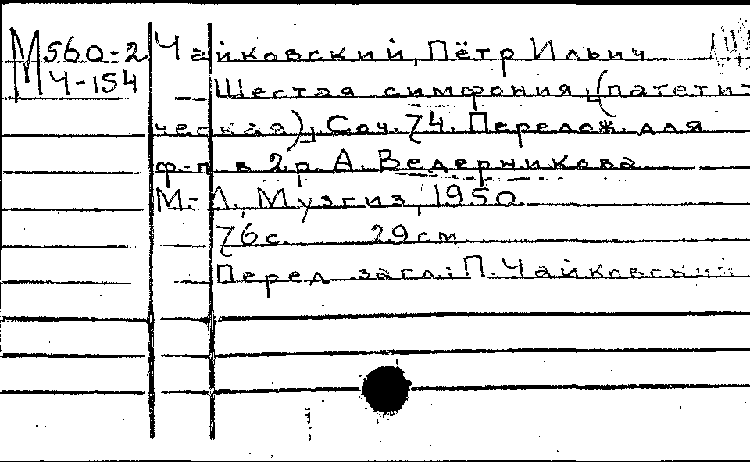 М560-2 Чайковский, Пётр Ильич
Ч-154 Шестая симфония, (патети-
ческая), Соч. 74. Перелож. для
ф-п в 2 р. А. Ведерникова
М-Л, Музгиз, 1950.
76 с. 29 см
Перед загл.: П. Чайковский